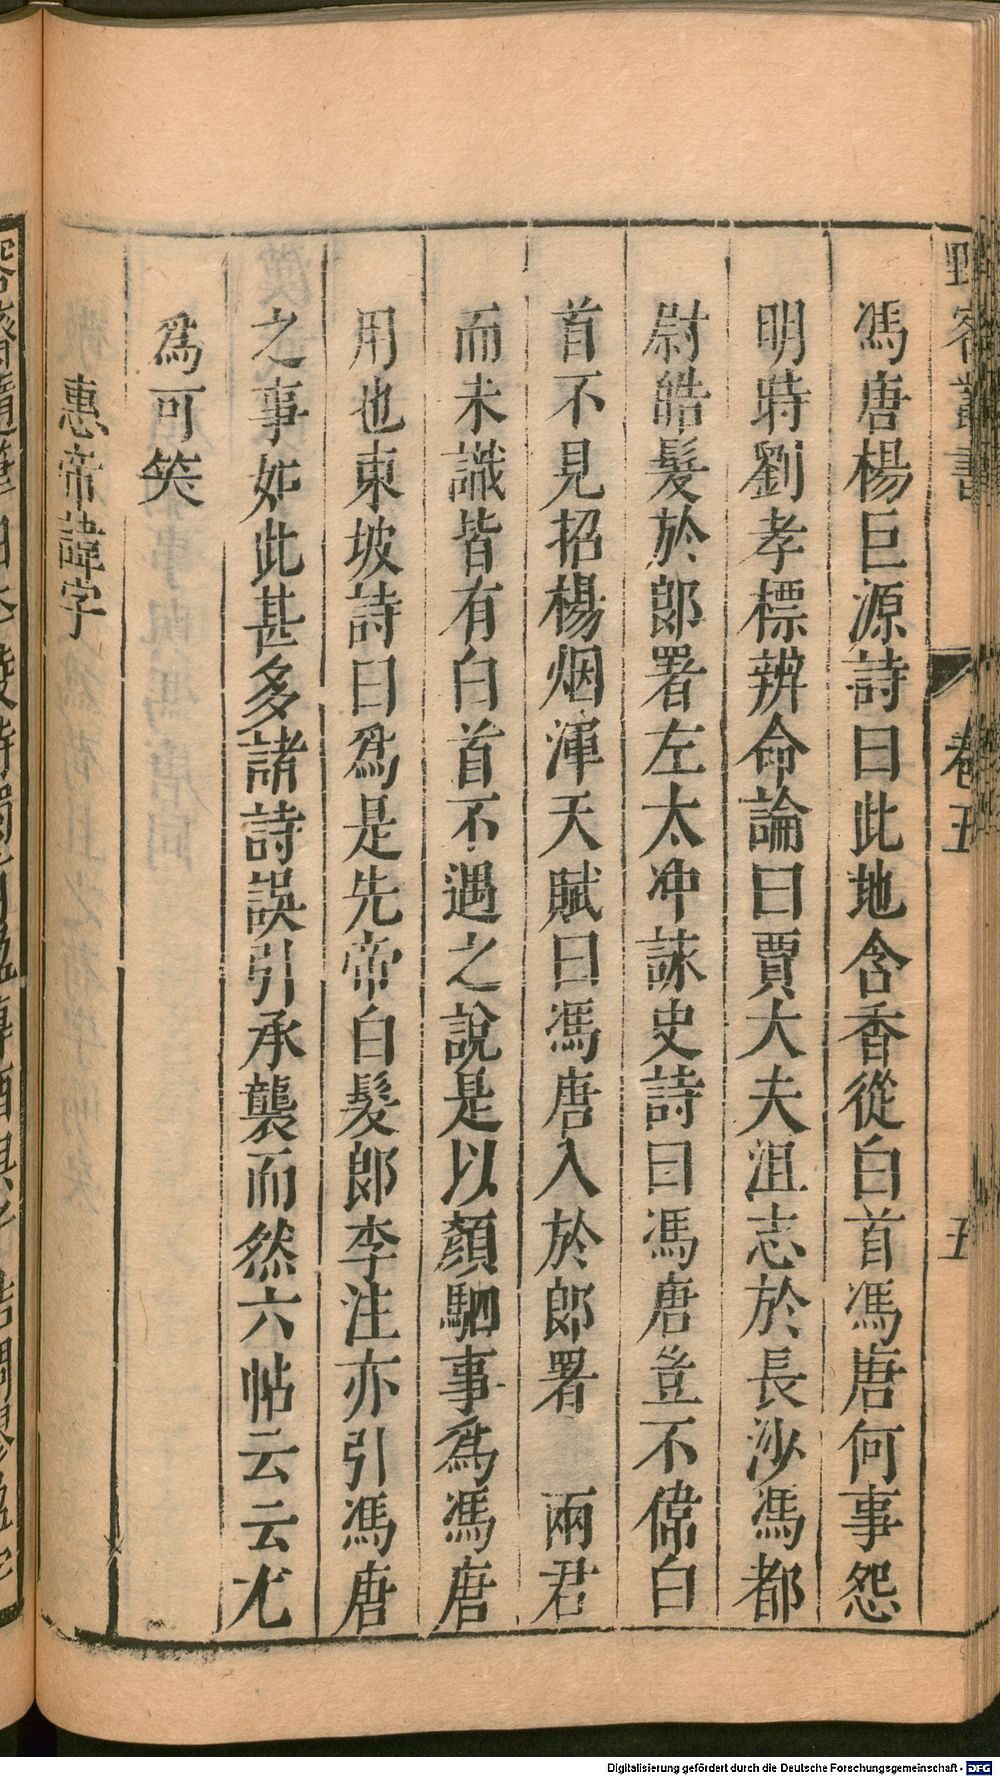 野客叢書 卷五 五
馮唐楊巨源詩曰此地含香從白首馮唐何事怨
明時劉孝標辨命論曰賈大夫沮志於長沙馮都
尉皓髮於郎署左太冲詠史詩曰馮唐豈不偉白
首不見招楊烟渾天賦曰馮唐入於郎署　兩君
而未識皆有白首不遇之說是以顏駟事為馮唐
用也東坡詩曰為是先帝白髮郎李注亦引馮唐
之事如此甚多諸詩誤引承襲而然六帖云云尤
為可笑
惠帝諱字
Digitalisierung gefördert durch die Deutsche Forschungsgemeinschaft - DFG